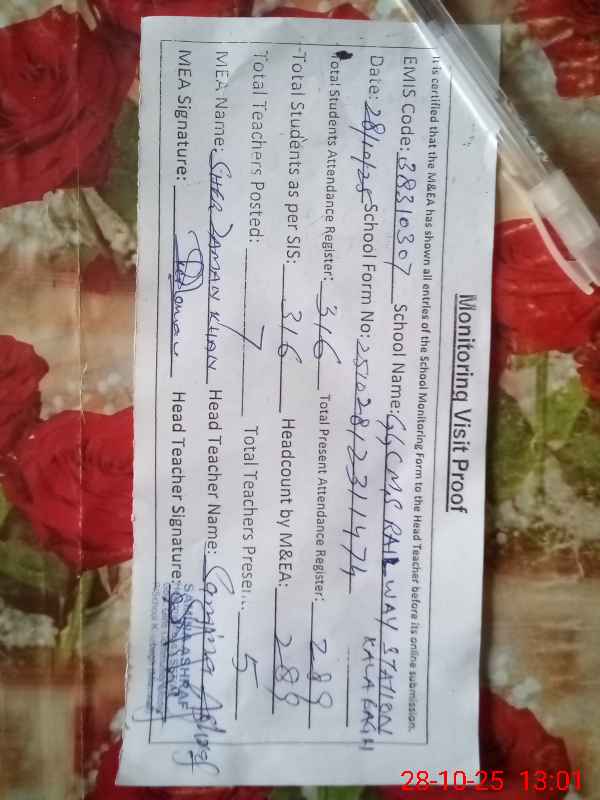 Monitoring Visit Proof
It is certified that the M&EA has shown all entries of the School Monitoring Form to the Head Teacher before its online submission.
EMIS Code: 38310307 School Name: GGCMS RAILWAY STATION
KALABAGH
Date: 28/10/25 School Form No: 25102812311474
Total Students Attendance Register: 316 Total Present Attendance Register: 289
Total Students as per SIS: 316 Headcount by M&EA: 289
Total Teachers Posted: 7 Total Teachers Presen... 5
MEA Name: SHER ZAMAN KHAN Head Teacher Name: Samina Ashraf
MEA Signature: Head Teacher Signature:
SAMINA ASHRAF
28-10-25 13:01